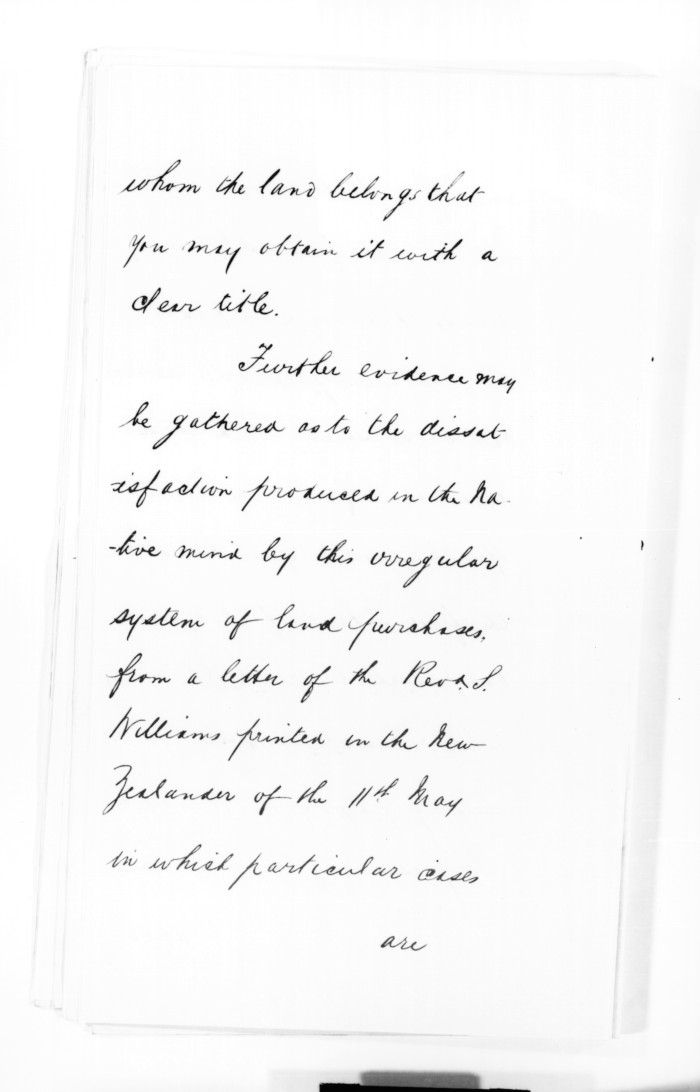 whom the land belongs that
you may obtain it with a
clear title.
Further evidence may
be gathered as to the dissat
-isfaction produced in the Na-
-tive mind by this irregular
system of land purchases,
from a letter of the Revd. S.
Williams printed in the New
Zealander of the 11th May
in which particular cases
are